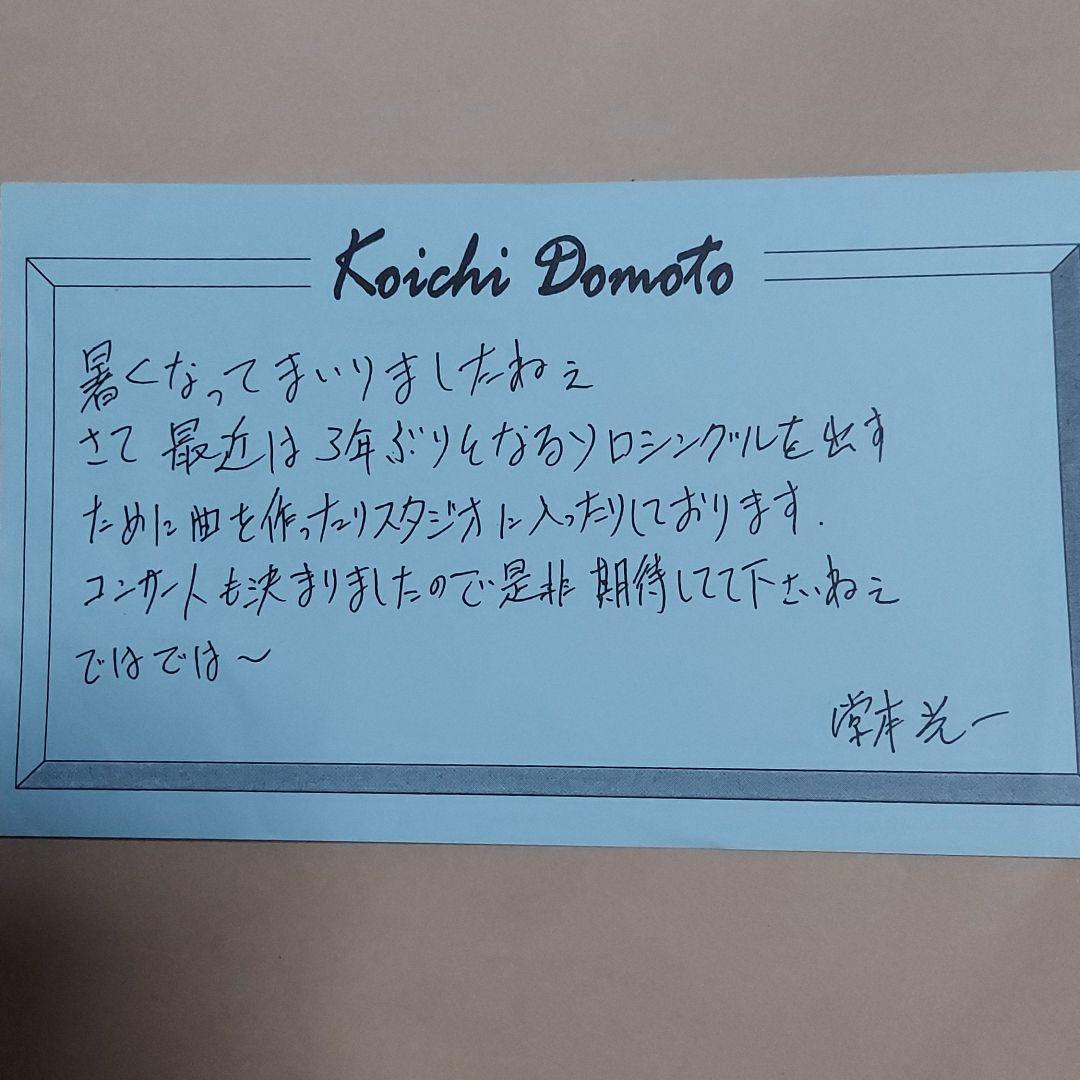 Koichi Domoto
暑くなってまいりましたねぇ
さて 最近は 3年ぶりとなるソロシングルを出す
ために曲を作ったりスタジオに入ったりしております.
コンサートも決まりましたので是非 期待してて下さいねぇ
ではでは〜
堂本光一